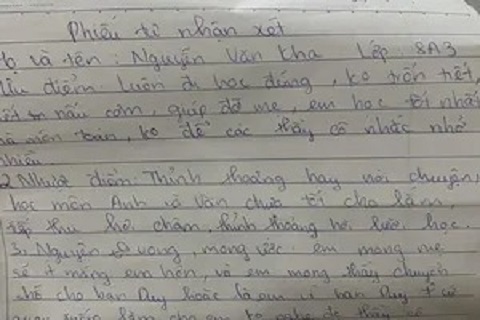 Phiếu tự nhận xét
Họ và tên: Nguyễn Văn Kha Lớp: 8A3
Ưu điểm: Luôn đi học đúng, ko trốn tiết,
biết nấu cơm, giúp đỡ mẹ, em học tốt nhất
là môn toán, ko để các thầy cô nhắc nhở
nhiều.
2. Nhược điểm: Thỉnh thoảng hay nói chuyện,
học môn Anh và Văn chưa tốt cho lắm,
tiếp thu hơi chậm, thỉnh thoảng hơi lười học.
3. Nguyện vọng, mong ước: em mong mẹ
sẽ ít mắng em hơn, và em mong thầy chuyển
chỗ cho bạn Duy hoặc là em vì bạn Duy
cho em